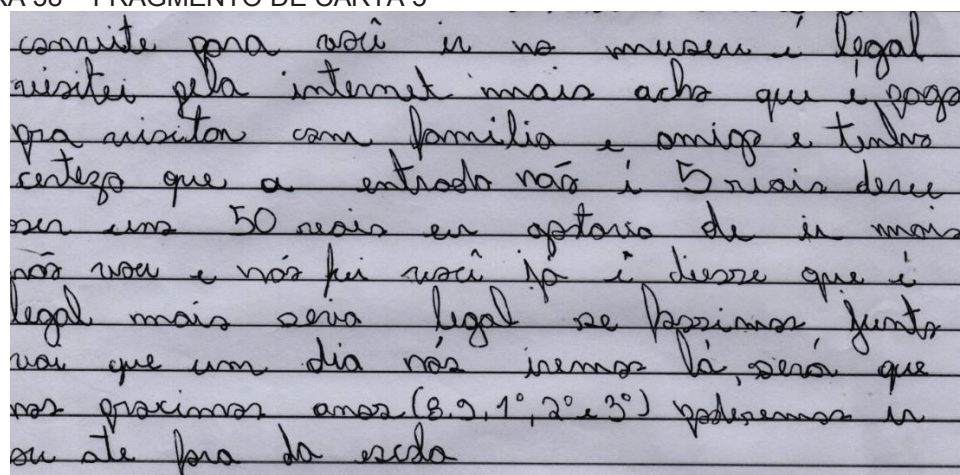 FRAGMENTO DE CARTA 5
convite para você ir no museu é legal
visitei pela internet mais acho que é pago
pra visitar com familia e amigo e tenho
certeza que a entrada não é 5 riais deve
ser uns 50 reais eu gostaria de ir mais
não vou e nós fui você já é disse que é
legal mais seria legal se fossimos junto
vai que um dia nós iremos lá, será que
nos proximos anos (8.9, 1º, 2º e 3º) poderemos ir
ou ate fora da escola